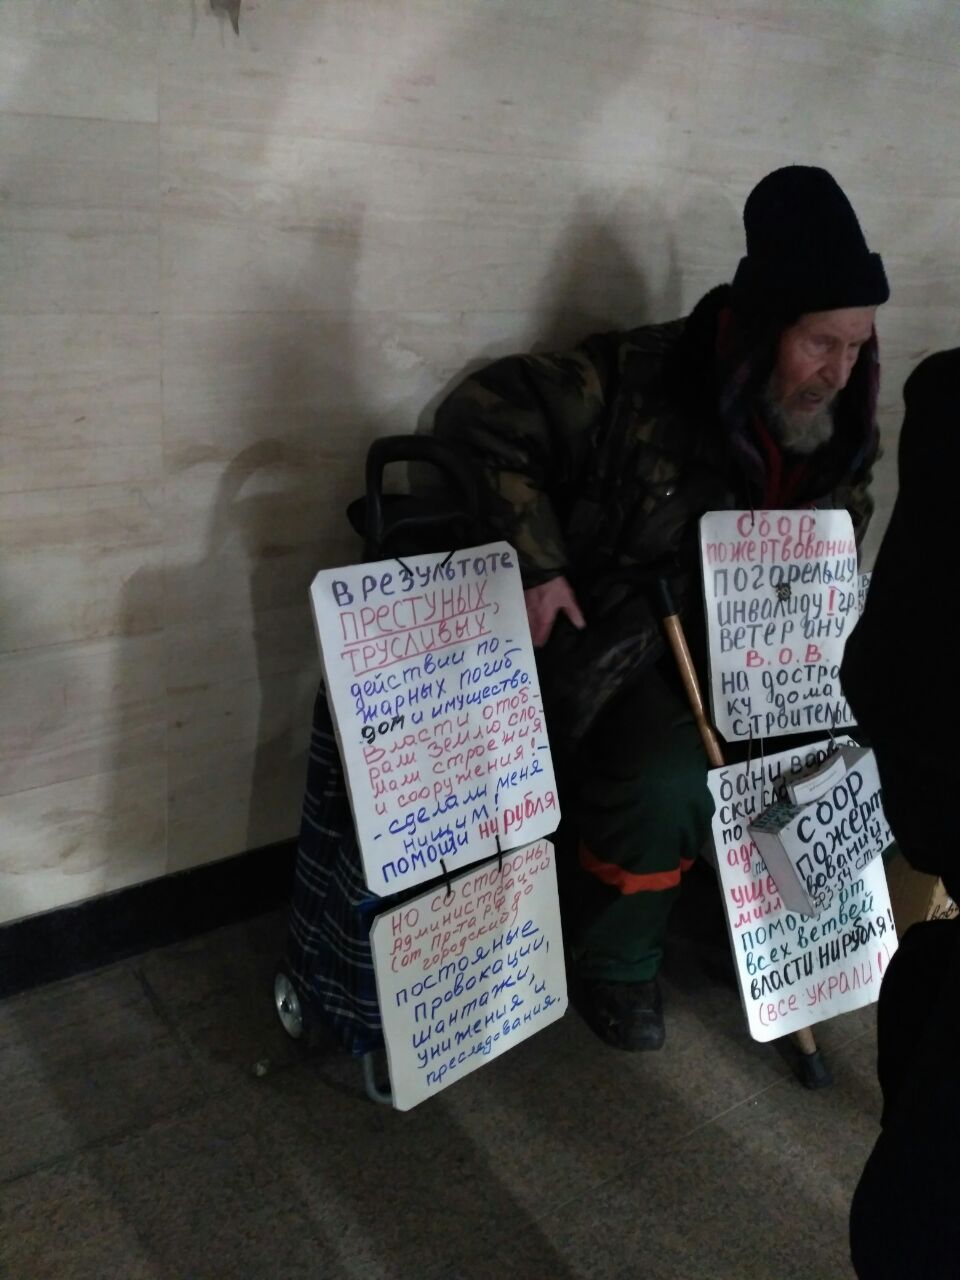 В РЕЗУЛЬТАТЕ
ПРЕСТУНЫХ,
ТРУСЛИВЫХ,
действии по-
жарных погиб
дом и имущество.
Власти отоб-
рали землю сло-
мали строения
и сооружения!-
-сделали меня
нищим!
помощи ни рубля
но со стороны
Администраций
(от пр-та РФ до
городский)
постояные
провокации,
шантажи,
унижения и
преследования.
Сбор
пожертвований
погорельцу
инвалиду I гр.
ветерану
В.О.В.
на достро
ку дома
строительс
бани
ски
по
СБОР
пожерт
вований
помо от
всех ветвей
власти ни рубля!
(все украли!)